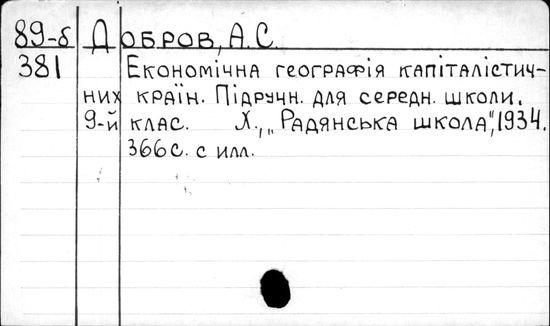 89-б Добров, А.С.
381 Економічна географія капіталістич-
них країн. Підручн. для середн. школи.
9-й клас. Х., „Радянська школа", 1934.
366с. с илл.